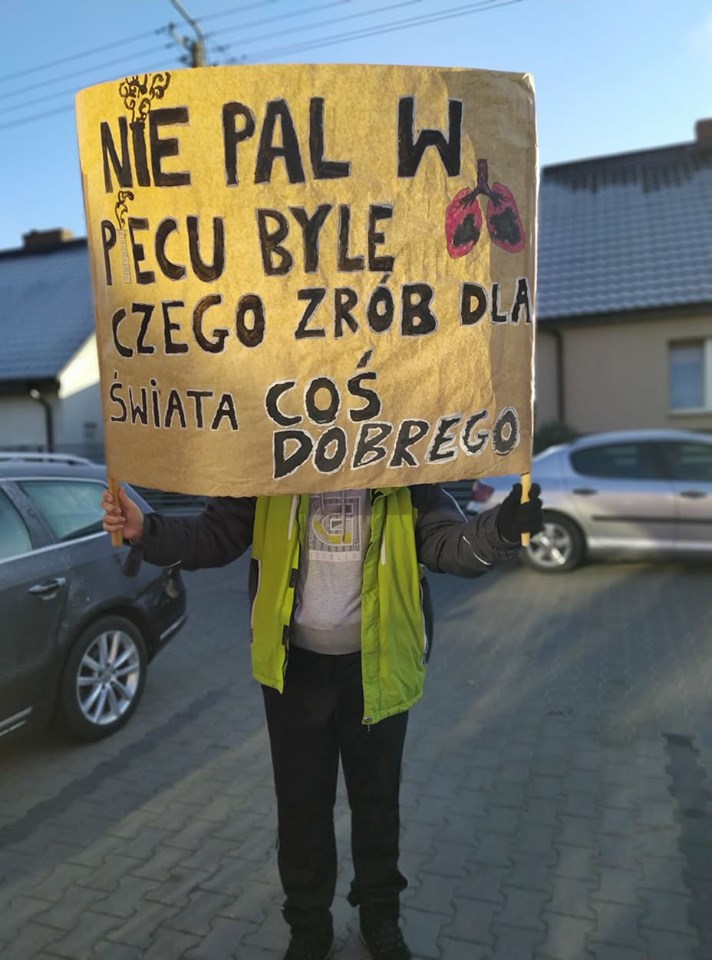 NIE PAL W
PIECU BYLE
CZEGO ZRÓB DLA
ŚWIATA COŚ
DOBREGO